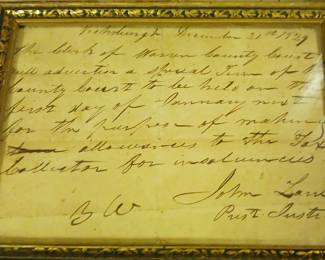 Vicksburgh December 21st 1829
The Clerk of Warren County Court
will advertise a special Term of th
County Court to be held on th
first day of January next
for the purpose of makin
allowances to the Tax
Collector for insolvencies
John Lane
Prest Justi
By W